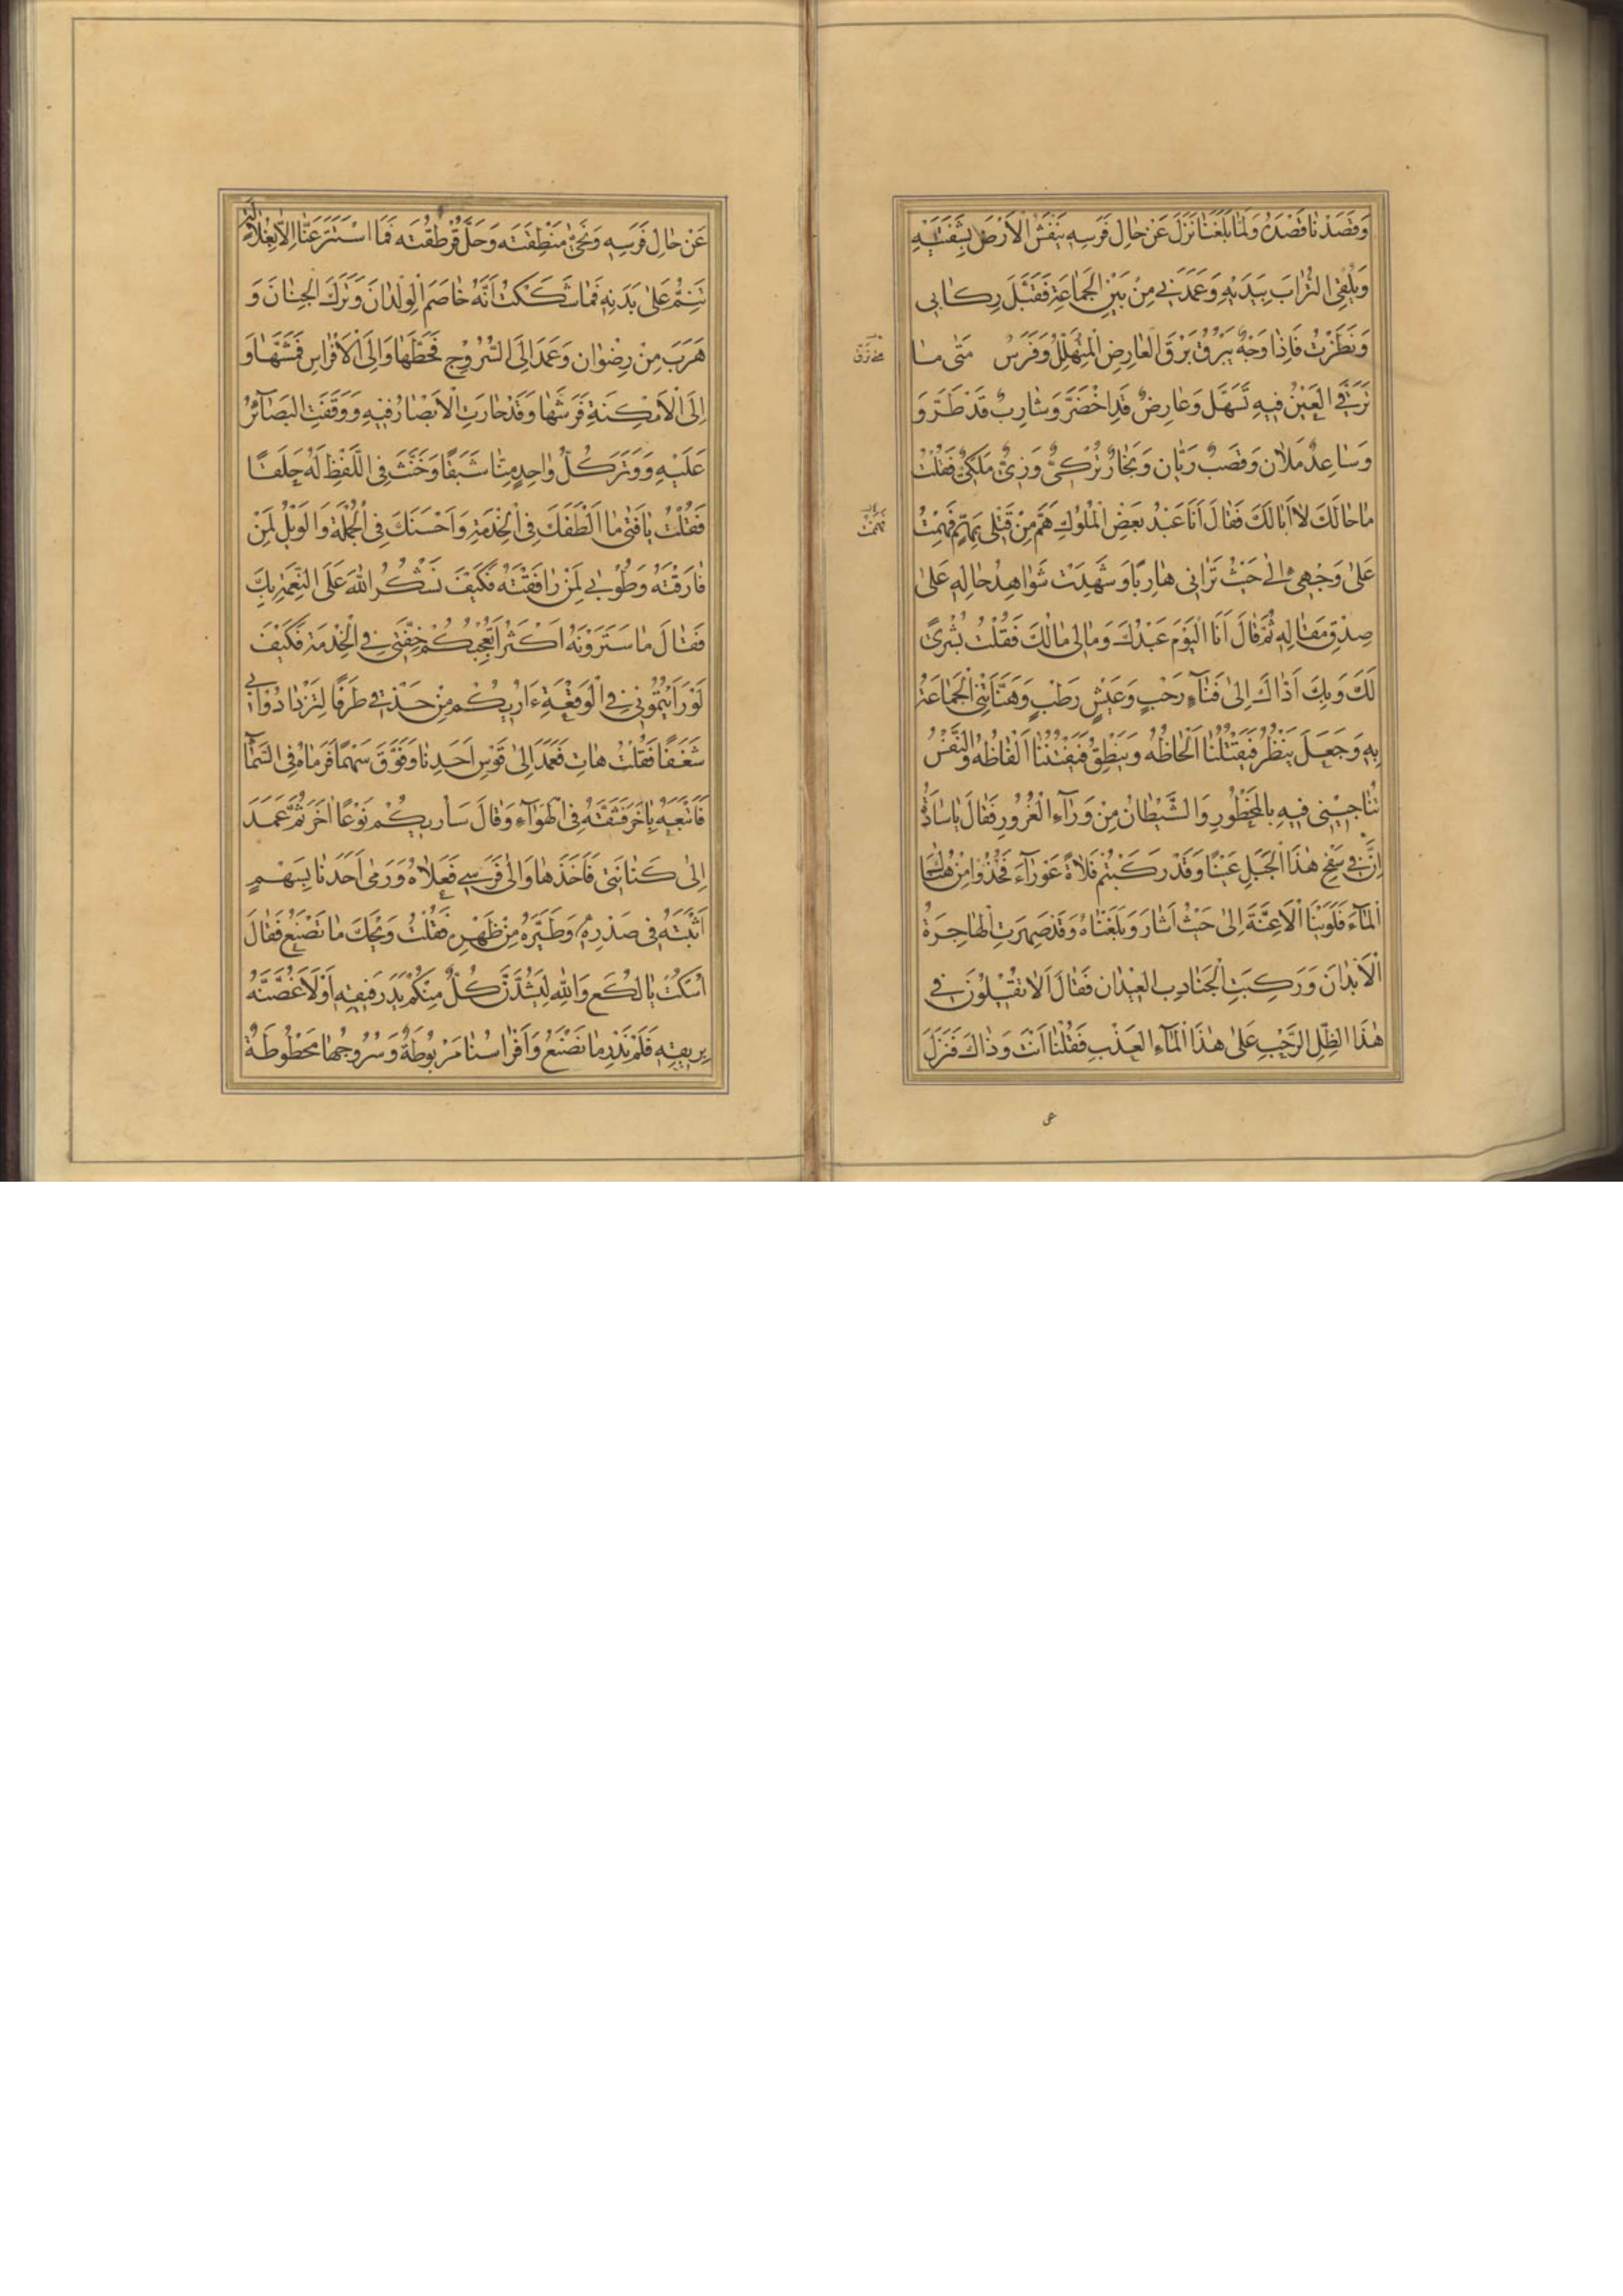 وَقَصَدْنَا قَصْدَهُ وَلَمَّا بَلَغَنَا نَزَلَ عَنْ حَالِ فَرَسِهِ يَنْقُشُ الْأَرْضَ بِشَفَتَيْهِ
وَيَلْقِى التُّرَابَ بِيَدَيْهِ وَعَمَدَنِى مِنْ بَيْنِ الْجَمَاعَةِ فَقَبَّلَ رِكَابِى
وَنَظَرْتُ فَاِذَا وَجْهٌ يَبْرُقُ بَرْقَ الْعَارِضِ الْمُتَهَلِّلِ وَفَرَسٌ مَتٰى مَا
تَرَقَّ الْعَيْنُ فِيهِ تَسَهَّلَ وَعَارِضٌ قَدِ اخْضَرَّ وَشَارِبٌ قَدْ طَرَّ وَ
وَسَاعِدٌ مَلْاٰن وَقَضِيبٌ رَيَّان وَنِجَارٌ تُرْكِىٌّ وَزِىٌّ مَلَكِىٌّ فَقُلْتُ
مَا حَالَكَ لَا اَبَا لَكَ فَقَالَ اَنَا عَبْدُ بَعْضِ الْمُلُوكِ هَمَّ مِنْ قَتْلِى بِهَمٍّ فَهِمْتُ
عَلٰى وَجْهِى اِلٰى حَيْثُ تَرَانِى هَارِبًا وَشَهِدَتْ شَوَاهِدُ حَالِهِ عَلٰى
صِدْقِ مَقَالِهِ ثُمَّ قَالَ اَنَا الْيَوْمَ عَبْدُكَ وَمَالِى مَالُكَ فَقُلْتُ بُشْرٰى
لَكَ وَبِكَ اَدَّاكَ اِلٰى فَنَاءٍ رَحْبٍ وَعَيْشٍ رَطْبٍ وَهَنَّأَتْنِى الْجَمَاعَةُ
بِهِ وَجَعَلَ يَنْظُرُ فَيَقْتُلُنَا اَلْحَاظُهُ وَيَنْطِقُ فَيَفْتِنُنَا اَلْفَاظُهُ وَالنَّفْسُ
تُنَاجِينِى فِيهِ بِالْمَحْظُورِ وَالشَّيْطَانُ مِنْ وَرَاءِ الْغُرُورِ فَقَالَ يَا سَادَةُ
اِنَّ فِى سَفْحِ هٰذَا الْجَبَلِ عَيْنًا وَقَدْ رَكِبْتُمْ فَلَاةً عَوْرَاءَ فَخُذُوا مِنْ هُنَالِكَ
الْمَاءَ فَلَوَيْنَا الْاَعِنَّةَ اِلٰى حَيْثُ اَشَارَ وَبَلَغْنَاهُ وَقَدْ صَهَرَتِ الْهَاجِرَةُ
الْاَبْدَانَ وَرَكِبَتِ الْجَنَادِبُ الْعِيدَانَ فَقَالَ اَلَا تَقِيلُونَ فِى
هٰذَا الظِّلِّ الرَّحْبِ عَلٰى هٰذَا الْمَاءِ الْعَذْبِ فَقُلْنَا اَنْتَ وَذَاكَ فَنَزَلَ
عَنْ حَالِ فَرَسِهِ وَنَحّٰى مِنْطَقَتَهُ وَحَلَّ قُرْطُقَتَهُ فَمَا اسْتَتَرَ عَنَّا اِلَّا بِغِلَالَةٍ
تَنِمُّ عَلٰى بَدَنِهِ فَمَا شَكَكْتُ اَنَّهُ خَاصَمَ الْوِلْدَانَ وَتَرَكَ الْجِنَانَ وَ
هَرَبَ مِنْ رِضْوَان وَعَمَدَ اِلَى السُّرُوجِ فَحَطَّهَا وَاِلَى الْاَفْرَاسِ فَمَشَّهَا وَ
اِلَى الْاَمْكِنَةِ فَرَشَّهَا وَقَدْ حَارَتِ الْاَبْصَارُ فِيهِ وَوَقَفَتِ الْبَصَائِرُ
عَلَيْهِ وَوَتَرَ كُلُّ وَاحِدٍ مِنَّا شَبَقًا وَخَنَّثَ فِى اللَّفْظِ لَهُ حَلَقًا
فَقُلْتُ يَا فَتٰى مَا اَلْطَفَكَ فِى الْخِدْمَةِ وَاَحْسَنَكَ فِى الْجُمْلَةِ وَالْوَيْلُ لِمَنْ
فَارَقْتَهُ وَطُوبٰى لِمَنْ رَافَقْتَهُ فَكَيْفَ نَشْكُرُ اللّٰهَ عَلَى النِّعْمَةِ بِكَ
فَقَالَ مَا سَتَرَوْنَهُ اَكْثَرُ اَتُعْجِبُكُمْ خِفَّتِى فِى الْخِدْمَةِ فَكَيْفَ
لَوْ رَاَيْتُمُونِى فِى الْوَقْعَةِ ءَاُرِيكُمْ مِنْ حِذْقِى طَرَفًا لِتَزْدَادُوا بِى
شَغَفًا فَقُلْتُ هَاتِ فَعَمَدَ اِلٰى قَوْسِ اَحَدِنَا وَفَوَّقَ سَهْمًا فَرَمَاهُ فِى السَّمَاءِ
فَاَتْبَعَهُ بِاٰخَرَ فَشَقَّهُ فِى الْهَوَاءِ وَقَالَ سَاُرِيكُمْ نَوْعًا اٰخَرَ ثُمَّ عَمَدَ
اِلٰى كِنَانَتِى فَاَخَذَهَا وَاِلٰى فَرَسِى فَعَلَاهُ وَرَمٰى اَحَدَنَا بِسَهْمٍ
اَثْبَتَهُ فِى صَدْرِهِ وَطَيَّرَهُ مِنْ ظَهْرِهِ فَقُلْتُ وَيْحَكَ مَا تَصْنَعُ فَقَالَ
اُسْكُتْ يَا لُكَعُ وَاللّٰهِ لَيَشُدَّنَّ كُلٌّ مِنْكُمْ يَدَ رَفِيقِهِ اَوْ لَاُغِصَّنَّهُ
بِرِيقِهِ فَلَمْ نَدْرِ مَا نَصْنَعُ وَاَفْرَاسُنَا مَرْبُوطَةٌ وَسُرُوجُهَا مَحْطُوطَةٌ